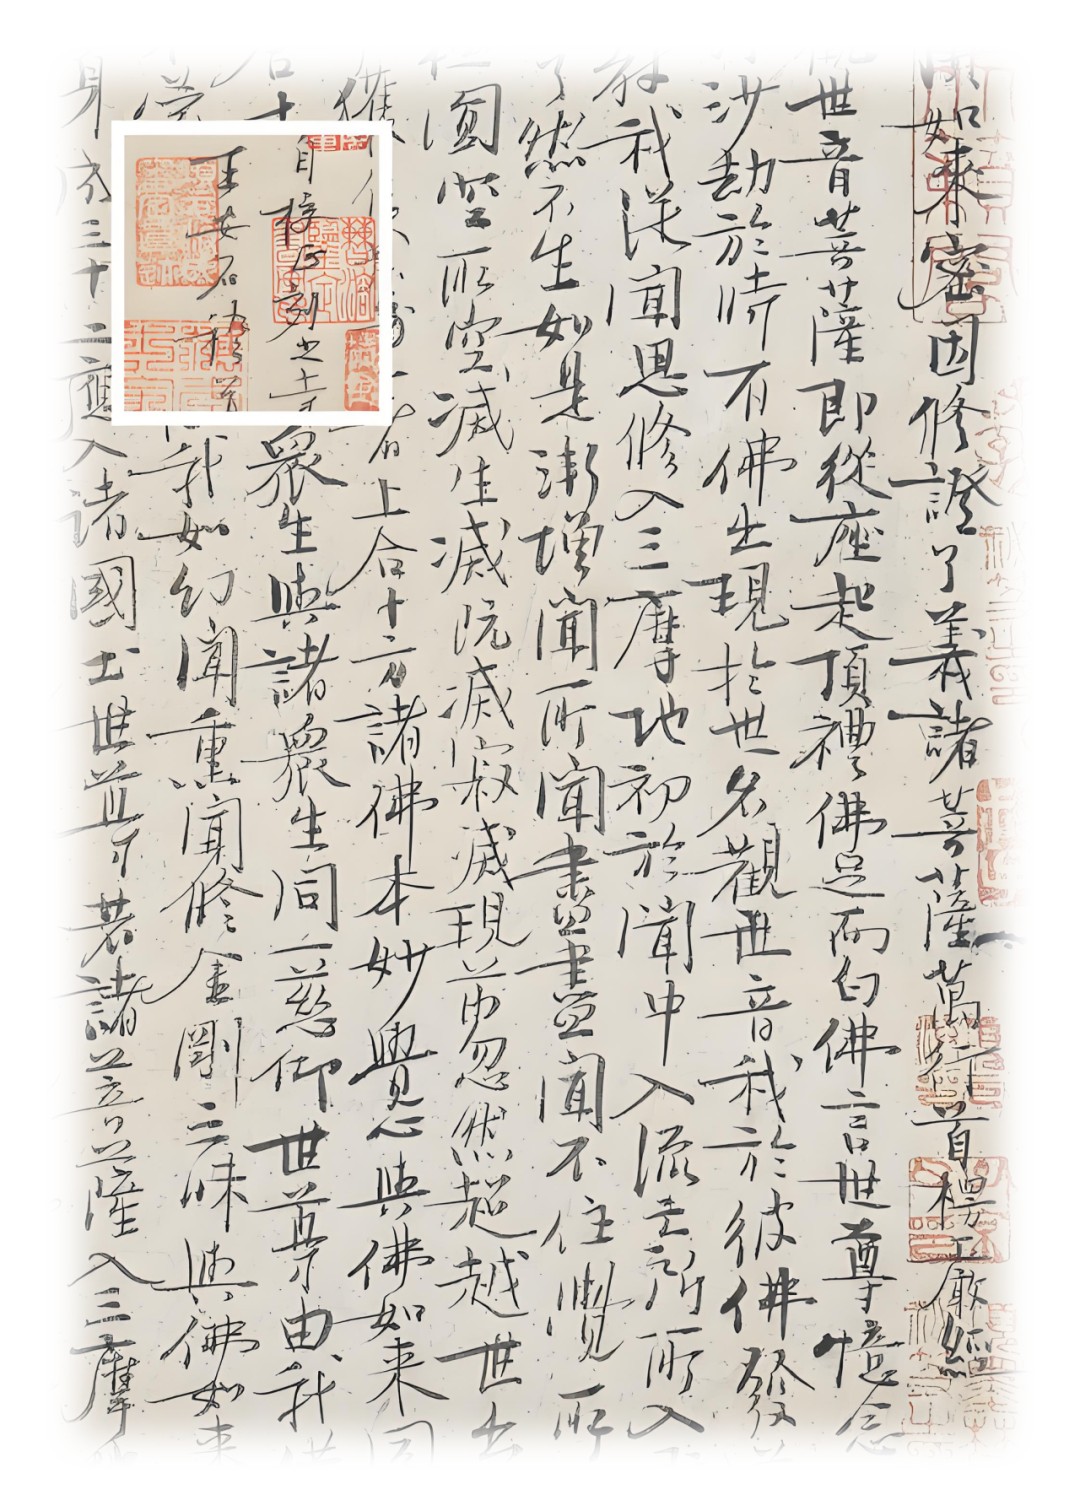 如來密因修證了義諸菩薩萬行首楞嚴經
世音菩薩即從座起頂禮佛足而白佛言世尊憶念
沙劫於時有佛出現於世名觀世音我於彼佛發
教我從聞思修入三摩地初於聞中入流亡所所入
了然不生如是漸增聞所聞盡盡聞不住覺所
圓空所空滅生滅既滅寂滅現前忽然超越世出
者上合十方諸佛本妙覺心與佛如來同
眾生與諸眾生同一慈仰世尊由我供
我如幻聞熏聞修金剛三昧與佛如來
身成三十二應入諸國土世尊若諸菩薩入三摩
自
王安石稽首